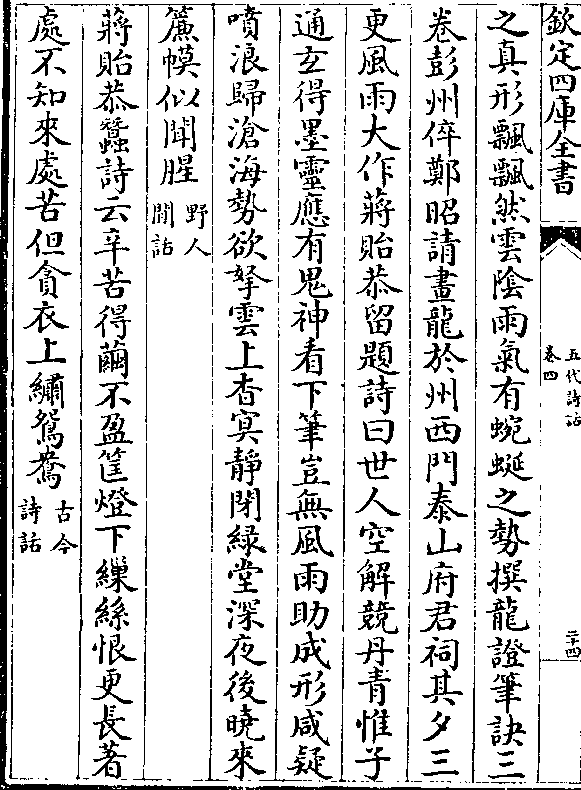 欽定四庫全書
五代詩話
卷四
二十四
之真形飄飄然雲陰雨氣有蜿蜒之勢撰龍證筆訣三
卷彭州倅鄭昭請畫龍於州西門泰山府君祠其夕三
更風雨大作蔣貽恭留題詩曰世人空解競丹青惟子
通玄得墨靈應有鬼神看下筆豈無風雨助成形咸疑
噴浪歸滄海勢欲拏雲上杳冥靜閉綠堂深夜後曉來
簾幙似聞腥野人閒話
蔣貽恭蠶詩云辛苦得繭不盈筐燈下繅絲恨更長著
處不知來處苦但貪衣上繡鴛鴦古今詩話